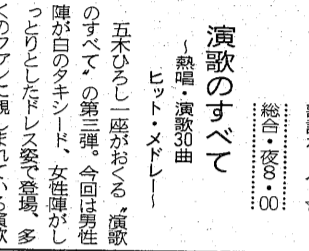 総合・夜8・00
演歌のすべて
〜熱唱・演歌30曲
ヒット・メドレー〜
五木ひろし一座がおくる〝演歌
のすべて〟の第三弾。今回は男性
陣が白のタキシード、女性陣がし
っとりとしたドレス姿で登場、多
くのファンに親しまれている演歌